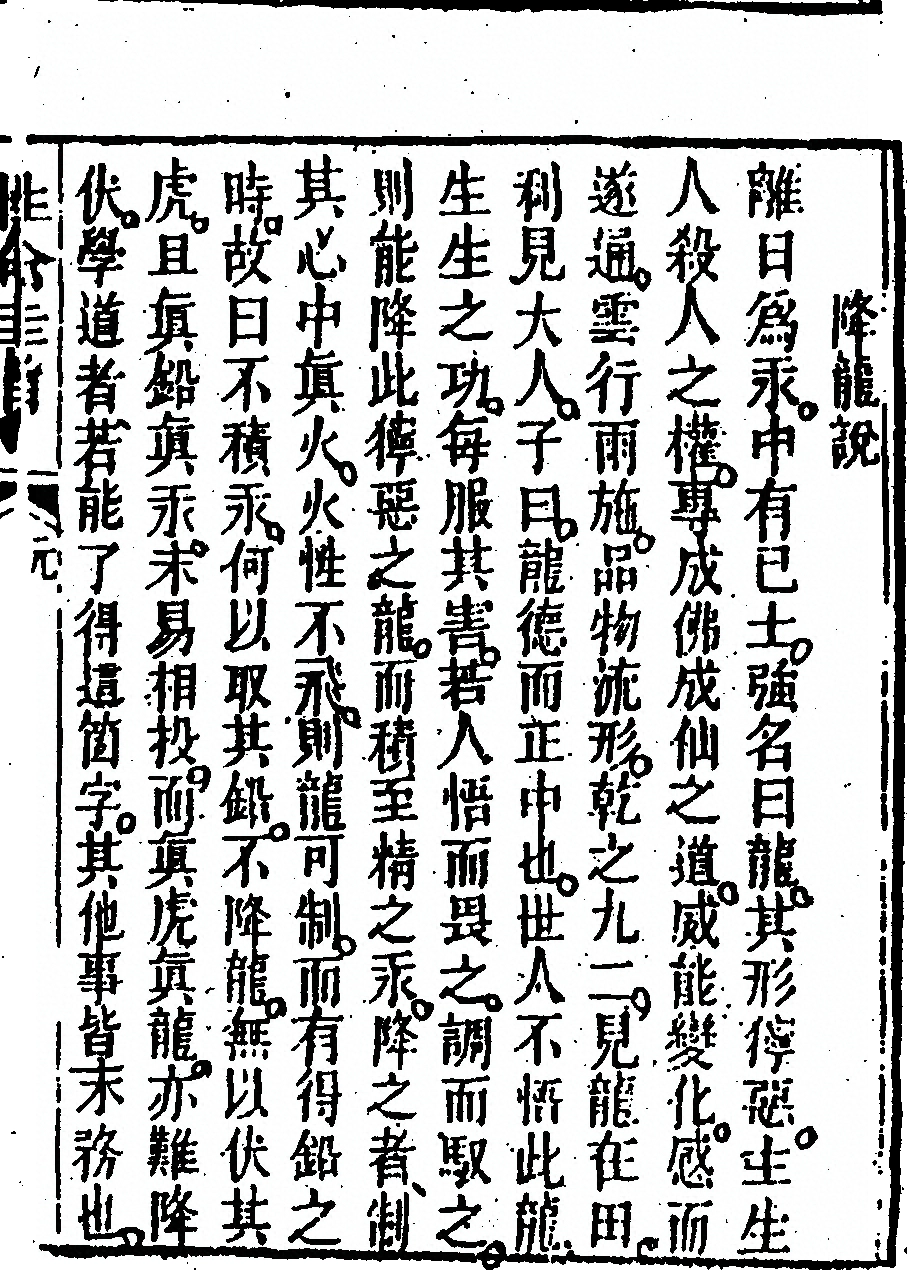 降龍說
離日為汞。中有已士。強名曰龍。其形獰惡。生生
人殺人之權。專成佛成仙之道。威能變化。感而
遂通。雲行雨施。品物流形。乾之九二。見龍在田。
利見大人。子曰。龍德而正中也。世人不悟此龍
生生之功。每服其害。若人悟而畏之。調而馭之。
則能降此獰惡之龍。而積至精之汞。降之者、制
其心中眞火。火性不飛。則龍可制。而有得鉛之
時。故曰不積汞。何以取其鉛。不降龍。無以伏其
虎。且眞鉛眞汞。未易相投。而眞虎眞龍。亦難降
伏。學道者若能了得這箇字。其他事皆末務也。
性命圭旨
元